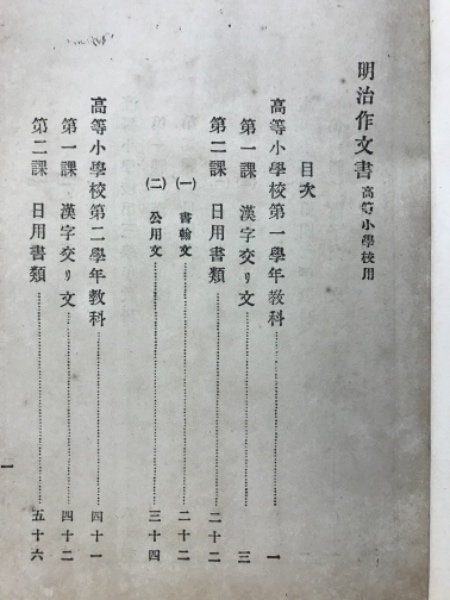 明治作文書 高等小學校用
目次
高等小學校第一學年敎科……一
第一課 漢字交リ文……三
第二課 日用書類……二十二
(一) 書翰文……二十二
(二) 公用文……三十四
高等小學校第二學年敎科……四十一
第一課 漢字交リ文……四十二
第二課 日用書類……五十六
一